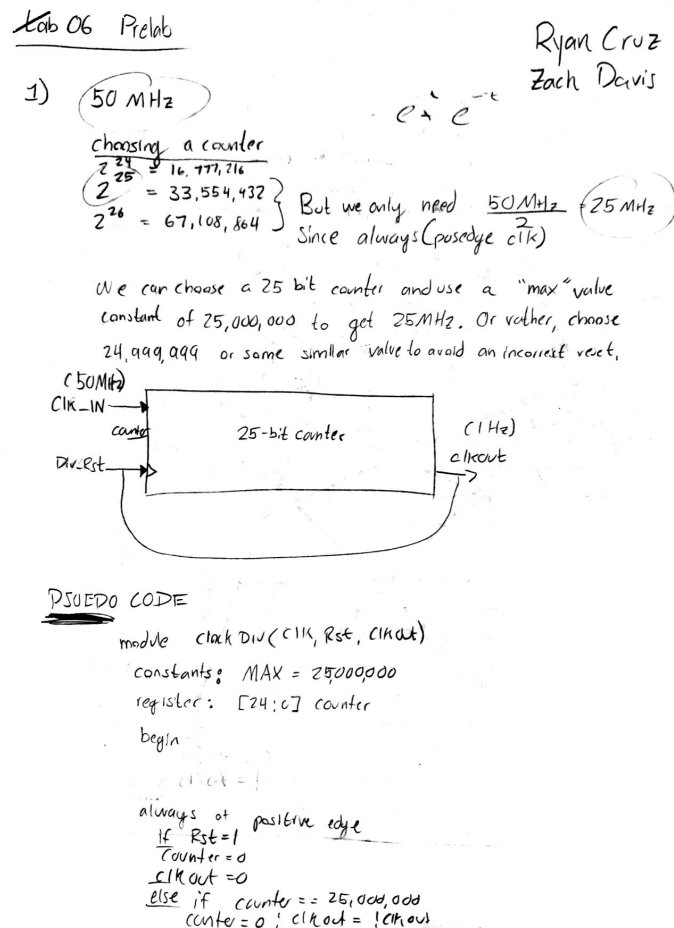 Lab 06 Prelab
Ryan Cruz
Zach Davis
1) 50 MHz
choosing a counter
2^24 = 16,777,216
2^25 = 33,554,432
2^26 = 67,108,864
But we only need 50MHz/2 = 25 MHz
Since always(posedge clk)
We can choose a 25 bit counter and use a "max" value
constant of 25,000,000 to get 25MHz. Or rather, choose
24,999,999 or some similar value to avoid an incorrect reset.
(50MHz)
Clk_IN
counter
25-bit counter
(1Hz)
clkout
Div_Rst
PSUEDO CODE
module clockDiv(Clk, Rst, Clkout)
constants: MAX = 25,000,000
register: [24:0] counter
begin
always at positive edge
if Rst=1
Counter=0
clkout=0
else if counter == 25,000,000
conter=0; clkout = !clkout